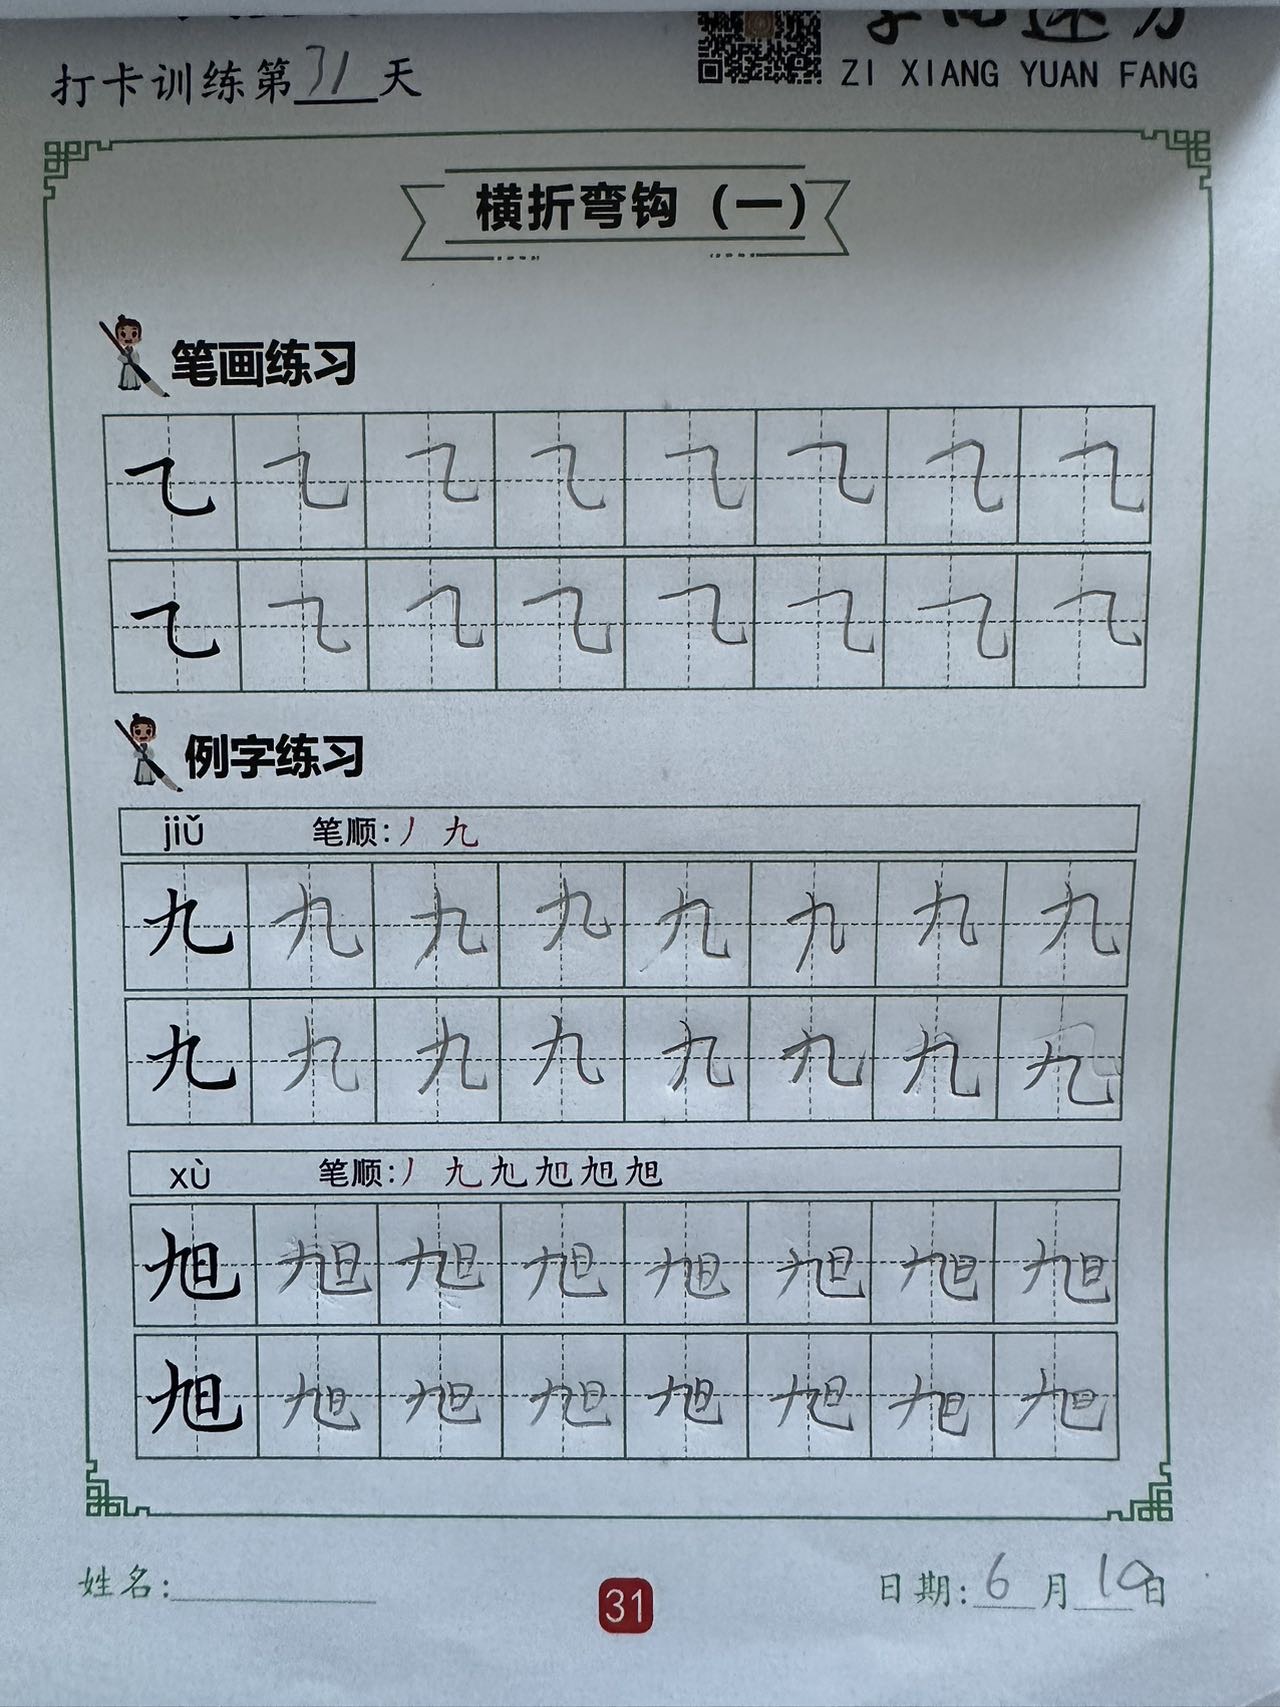 ZI XIANG YUAN FANG
打卡训练第31天
横折弯钩（一）
笔画练习
㇈ ㇈ ㇈ ㇈ ㇈ ㇈ ㇈ ㇈
㇈ ㇈ ㇈ ㇈ ㇈ ㇈ ㇈ ㇈
例字练习
jiǔ 笔顺：丿 九
九 九 九 九 九 九 九 九
九 九 九 九 九 九 九 九
xù 笔顺：丿 九 旭 旭 旭
旭 旭 旭 旭 旭 旭 旭 旭
旭 旭 旭 旭 旭 旭 旭 旭
姓名：
31
日期：6月10日